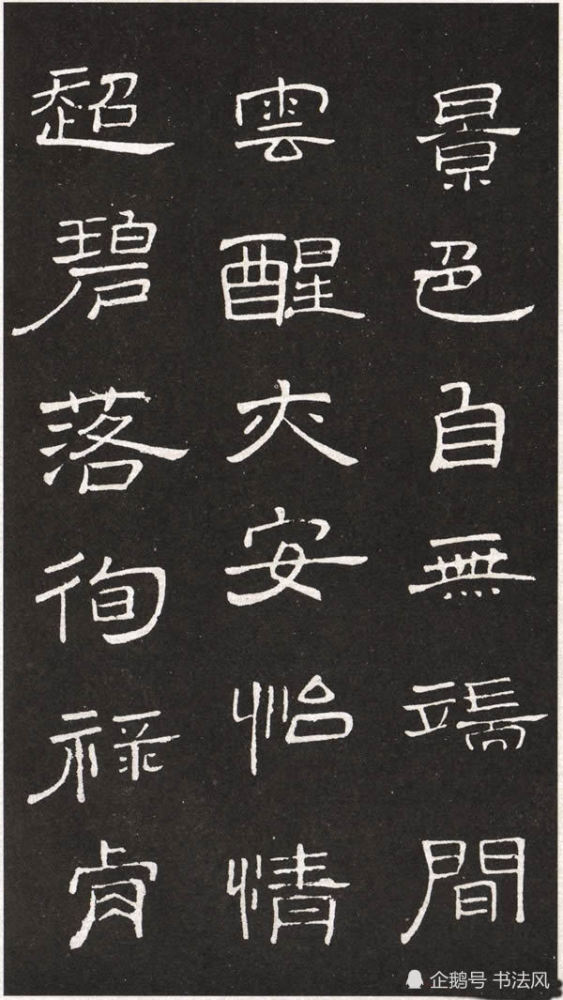 景色自無端間
雲醒大安怡情
超碧落徇祿肯
企鹅号 书法风